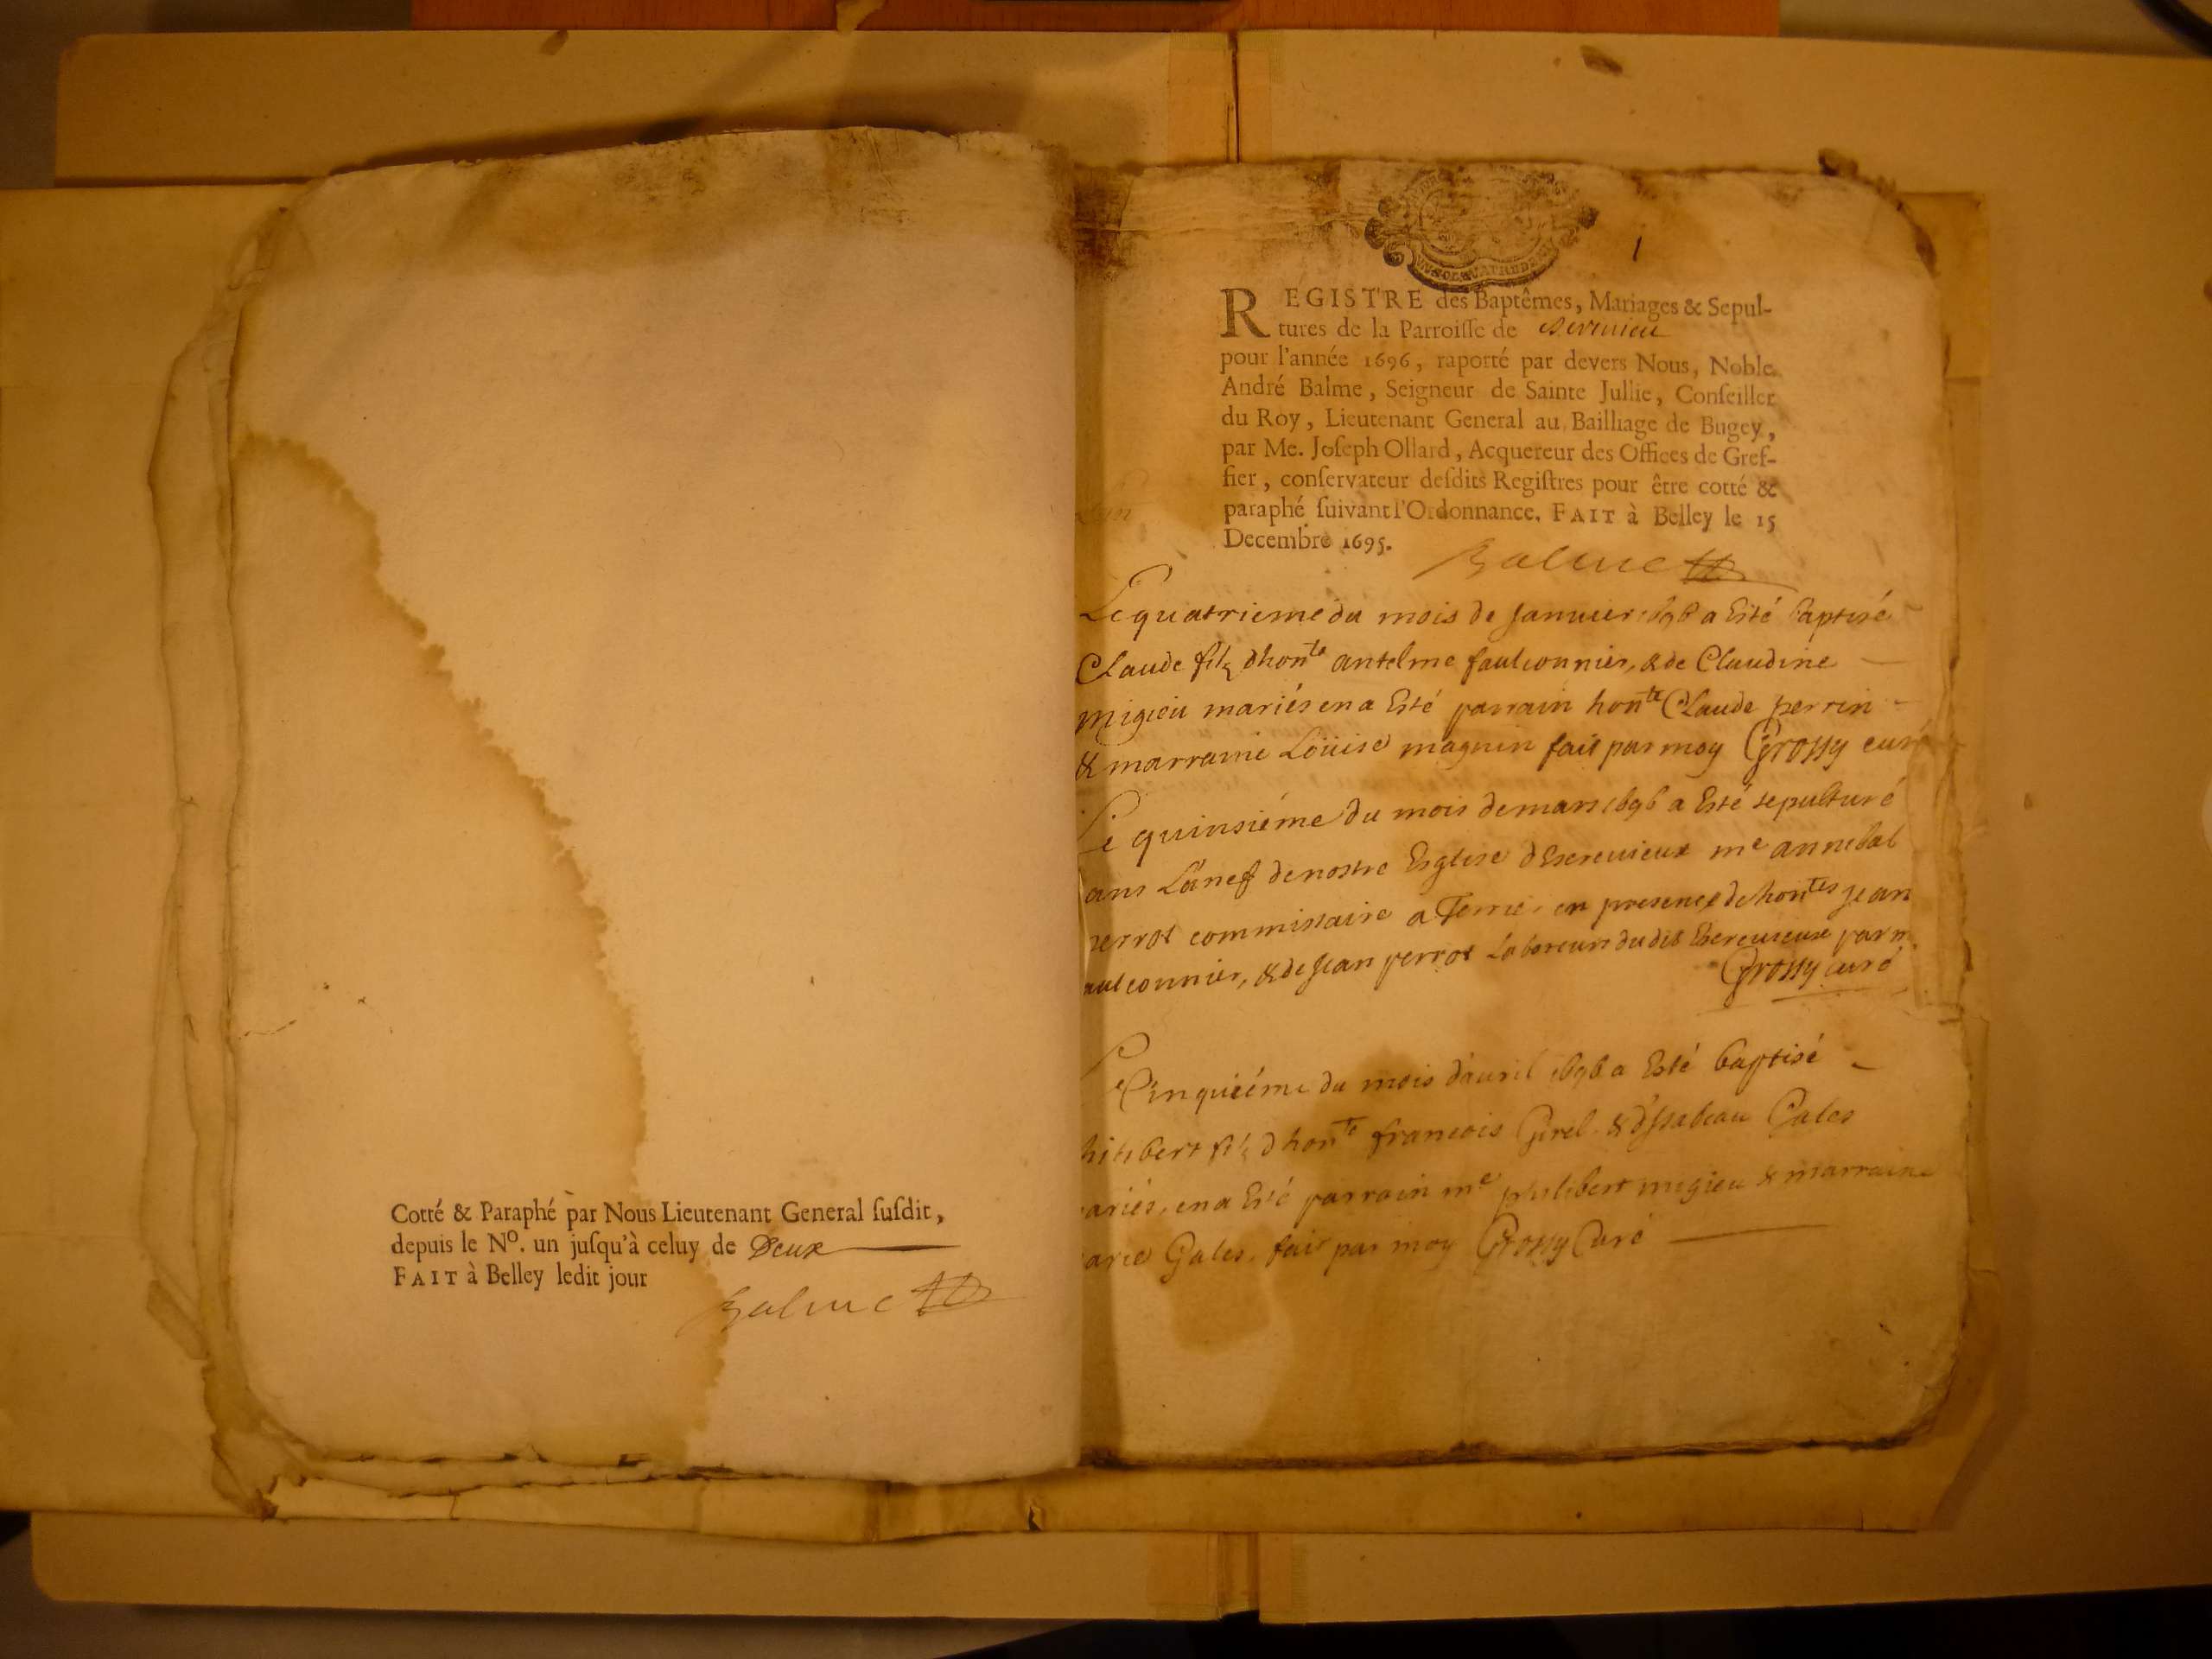 Cotté & Paraphé par Nous Lieutenant General ſuſdit,
depuis le Nº. un juſqu'à celuy de Deux
FAIT à Belley ledit jour
Balme
1
REGISTRE des Baptêmes, Mariages & Sepul-
tures de la Parroiſſe de
pour l'année 1696, raporté par devers Nous, Noble
André Balme, Seigneur de Sainte Jullie, Conſeiller
du Roy, Lieutenant General au Bailliage de Bugey,
par Me. Joſeph Ollard, Acquereur des Offices de Gref-
fier, conſervateur deſdits Regiſtres pour être cotté &
paraphé ſuivant l'Ordonnance. FAIT à Belley le 15
Decembre 1695.
Balme
Le quatrieme du mois de Januier 1696 a Esté baptisé
Claude filz dhonte antelme faulconnier, & de Claudine
migieu mariés en a Esté parrain honte Claude perrin
& marraine Loüise magnin fait par moy Grossy curé
Le quinsiéme du mois de mars 1696 a Esté sepulturé
ans La nef de nostre Esglise dEscreuieux me annibal
perrot commissaire a Terrier en presence de hontes jean
aulconnier, & de Jean perrot Laboreurs dudit Escreuieux par m
Grossy curé
Le Cinquiéme du mois dauril 1696 a Esté baptisé
hilibert filz dhonte francois Girel & dIsabeau Gales
ariés, en a Esté parrain me philibert migieu & marraine
arie Gales. fait par moy Grossy Curé